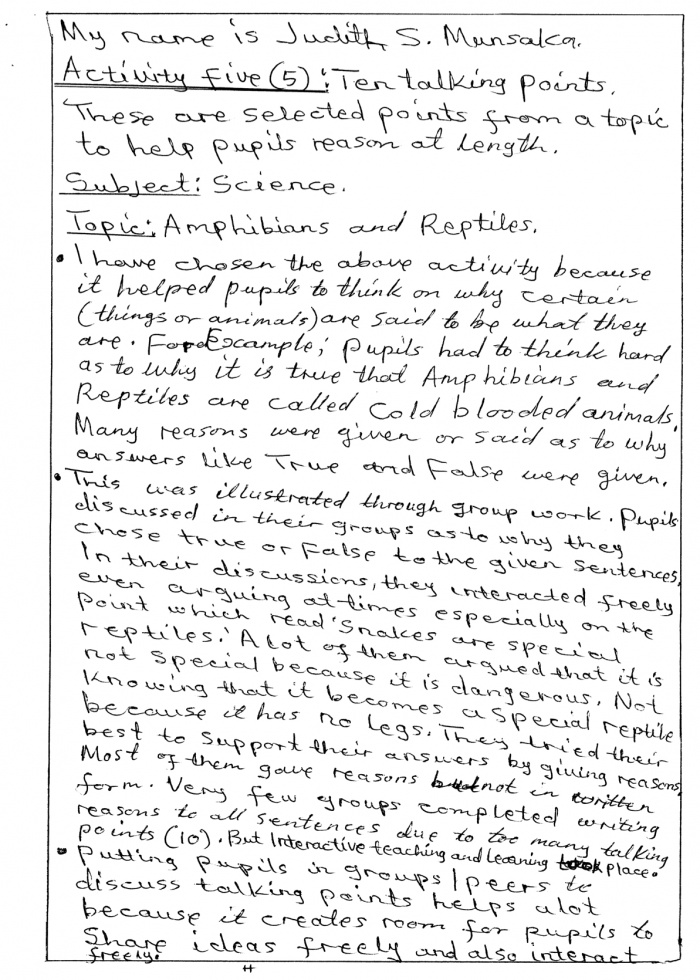 My name is Judith S. Munsaka.
Activity Five (5): Ten talking points.
These are selected points from a topic
to help pupils reason at length.
Subject: Science.
Topic: Amphibians and Reptiles.
• I have chosen the above activity because
it helped pupils to think on why certain
(things or animals) are said to be what they
are. For Example; pupils had to think hard
as to why it is true that Amphibians and
Reptiles are called Cold blooded animals.
Many reasons were given or said as to why
answers like True and False were given.
• This was illustrated through group work. Pupils
discussed in their groups as to why they
chose true or False to the given sentences.
In their discussions, they interacted freely
even arguing at times especially on the
point which read 'Snakes are special
reptiles.' A lot of them argued that it is
not special because it is dangerous. Not
knowing that it becomes a special reptile
because it has no legs. They tried their
best to support their answers by giving reasons.
Most of them gave reasons but not in written
form. Very few groups completed writing
reasons to all sentences due to too many talking
points (10). But Interactive teaching and learning took place.
• Putting pupils in groups/peers to
discuss talking points helps a lot
because it creates room for pupils to
Share ideas freely and also interact
freely.